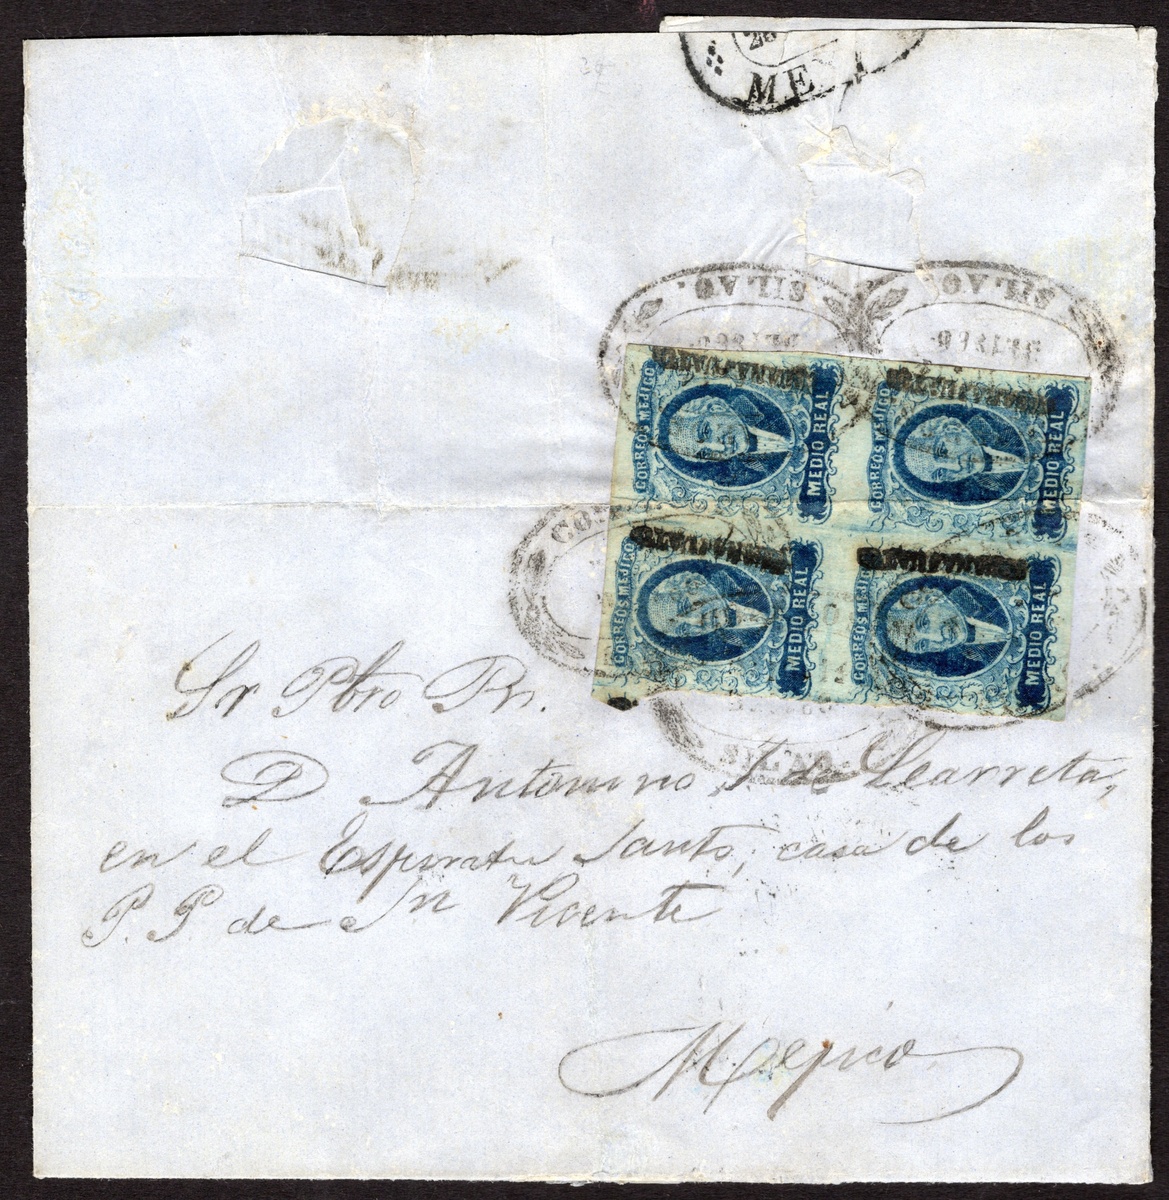 ME
SILAO.
SILAO.
CORREOS MEJICO
MEDIO REAL
CORREOS MEJICO
MEDIO REAL
CORREOS MEJICO
MEDIO REAL
CORREOS MEJICO
MEDIO REAL
SILAO
Sr Pbro Pn.
D Antonino J de Learreta,
en el Espiratu Santo, casa de los
P. P. de Sn Vicente
Mejico